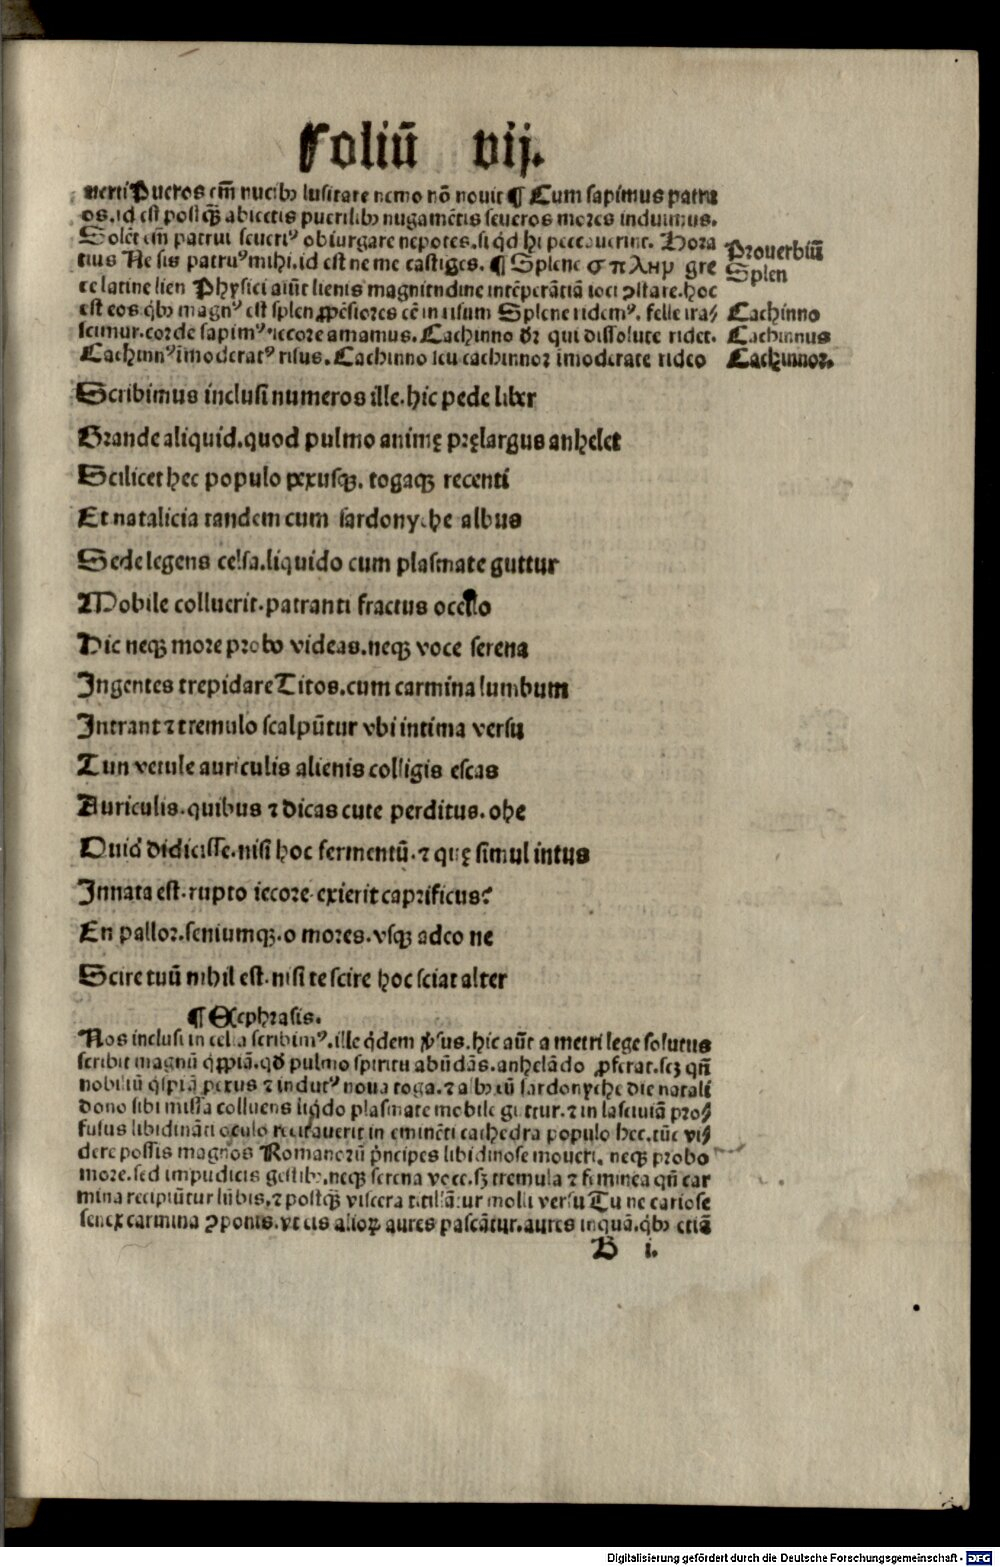 Foliū vij.
uerti Pueros em̄ nucibꝫ lusitare nemo nō nouit ¶ Cum sapimus patru
os. id est postqꝫ̄ abiectis puerilibꝫ nugamētis seueros mores induimus.
Solēt em̄ patrui seueriꝰ obiurgare nepotes. si qͥd hi peccauerint. Hora
tius Ne sis patruꝰ mihi. id est ne me castiges. ¶ Splene σπληρ gre
ce latine lien Physici aiūt lienis magnitudine intēperātiā ioci ꝯstare. hoc
est eos qͥbꝫ magnꝰ est splen ꝓpēsiores eē in risum Splene ridemꝰ. felle ira⸗
scimur. corde sapimꝰ. iecore amamus. Cachinno dr̄ qui dissolute ridet.
Cachinnꝰ īmoderatꝰ risus. Cachinno seu cachinnor īmoderate rideo
Prouerbiū
Splen
Cachinno
Cachinnus
Cachinnor.
Scribimus inclusi numeros ille. hic pede liber
Grande aliquid. quod pulmo animę pręlargus anhelet
Scilicet hec populo pexusqꝫ. togaqꝫ recenti
Et natalicia tandem cum sardonyche albus
Sede legens celsa. liquido cum plasmate guttur
Mobile colluerit. patranti fractus ocello
Hic neqꝫ more probo videas. neqꝫ voce serena
Ingentes trepidare Titos. cum carmina lumbum
Intrant ⁊ tremulo scalpūtur vbi intima versu
Tun vetule auriculis alienis colligis escas
Auriculis. quibus ⁊ dicas cute perditus. ohe
Quid didicisse. nisi hoc fermentū. ⁊ quę simul intus
Innata est. rupto iecore exierit caprificus?
En pallor. seniumqꝫ. o mores. vsqꝫ adeo ne
Scire tuū nihil est. nisi te scire hoc sciat alter
¶ Ecphrasis.
Nos inclusi in cella scribimꝰ. ille qͥdem v̓sus. hic aūt a metri lege solutus
scribit magnū qͥppiā. qd̓ pulmo spiritu abūdās. anhelādo ꝓferat. scꝫ qn̄
nobiliū qͥspiā pexus ⁊ indutꝰ noua toga. ⁊ albꝫ cū sardonyche die natali
dono sibi missa colluens liqͥdo plasmate mobile guttur. ⁊ in lasciuiā pro⸗
fusus libidināti oculo recitauerit in eminēti cathedra populo hec. tūc vi⸗
dere possis magnos Romanorū pͥncipes libidinose moueri. neqꝫ probo
more. sed impudicis gestibꝫ. neqꝫ serena voce. sꝫ tremula ⁊ feminea qn̄ car
mina recipiūtur lūbis. ⁊ postqꝫ̄ viscera titillātur molli versu Tu ne cariose
senex carmina ꝯponis. vt eis alioꝝ aures pascātur. aures inquā. qͥbꝫ etiā
B i.
Digitalisierung gefördert durch die Deutsche Forschungsgemeinschaft - DFG